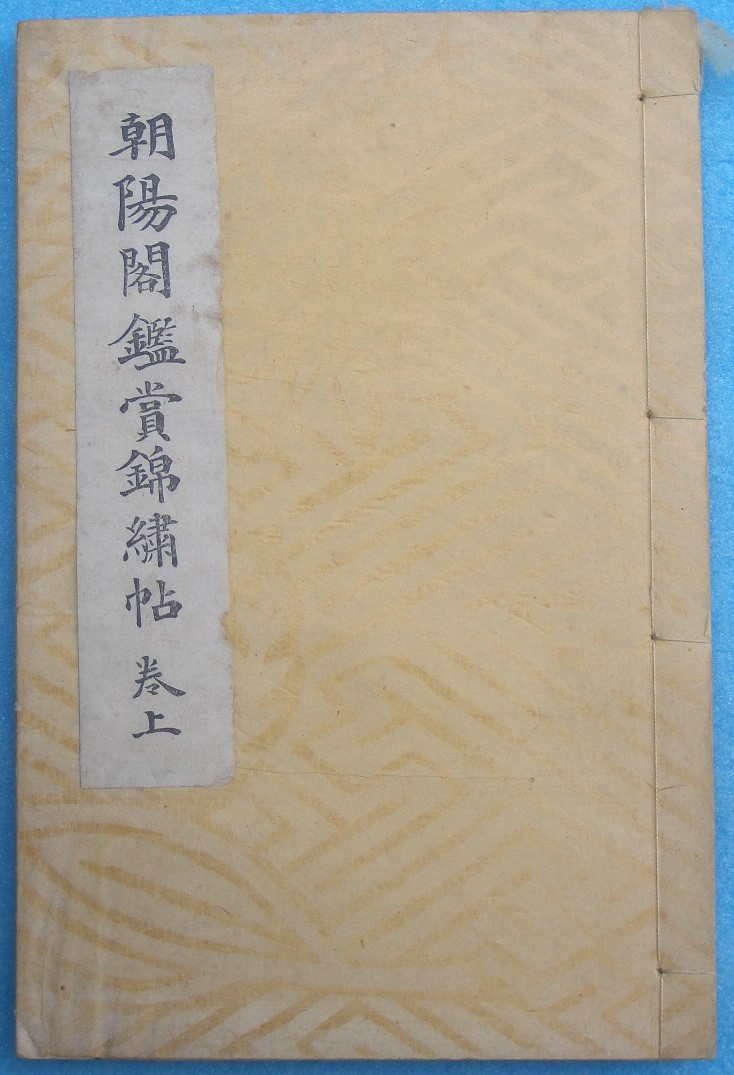 朝陽閣鑑賞錦繡帖 卷上